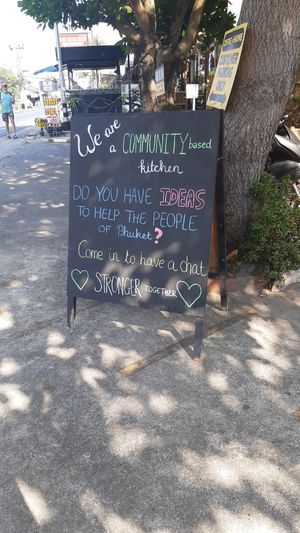 We are
a COMMUNITY based
kitchen
DO YOU HAVE IDEAS
TO HELP THE PEOPLE
OF Phuket?
Come in to have a chat
STRONGER TOGETHER